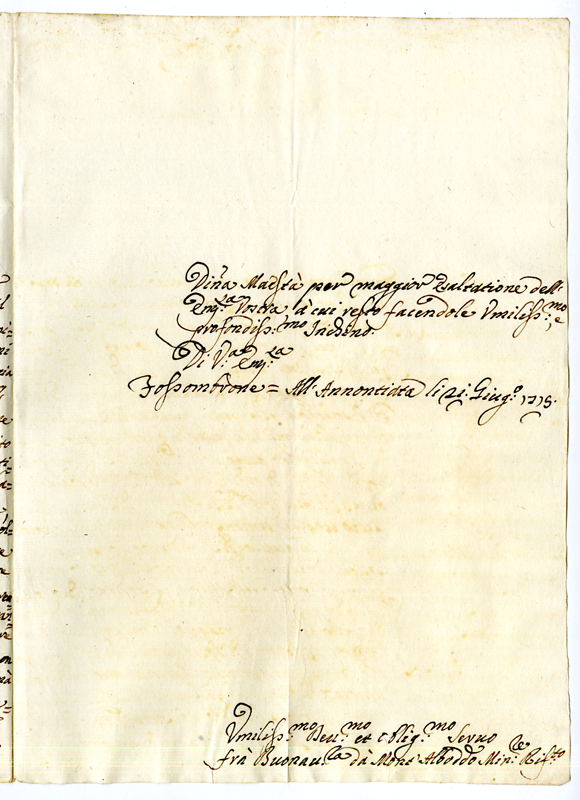 Divina Maestà per maggior Esaltatione dell'
Em.za Vostra, à cui resto facendole Vmiliss:mo, e
profondiss:mo Inchino.
Di V.a Em.za
Fossombrone = All'Annontiata li 21: Giug.o 1715.
Vmiliss:mo Deu:mo et oblig:mo Seruo
frà Buonau:ra dà Mont'Alboddo Min: